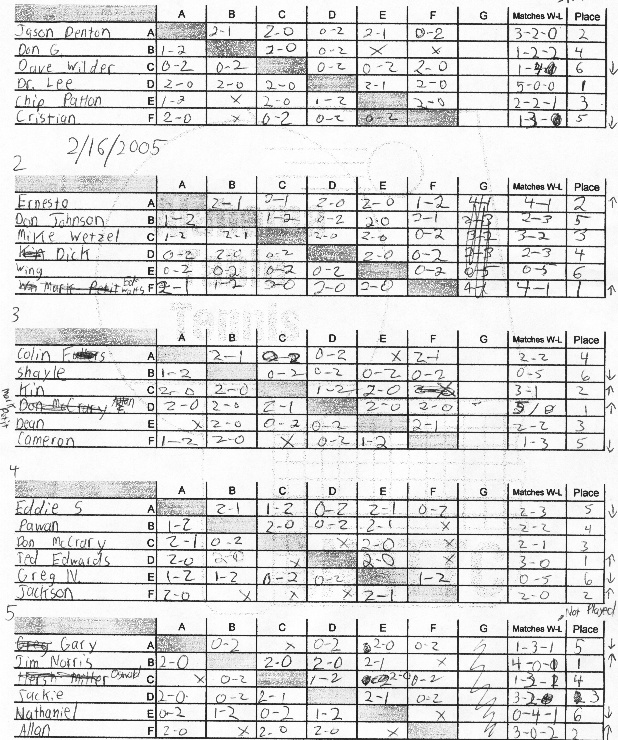 A B C D E F G Matches W-L Place
Jason Denton A 2-1 2-0 0-2 2-1 0-2 3-2-0 2
Don G B 1-2 2-0 0-2 X X 1-2-2 4
Dave Wilder C 0-2 0-2 0-2 0-2 2-0 6 ↓
Dr. Lee D 2-0 2-0 2-0 2-1 2-0 5-0-0 1
Chip Patton E 1-2 X 2-0 1-2 2-0 2-2-1 3
Cristian F 2-0 X 0-2 0-2 0-2 5 ↓
2/16/2005
2
A B C D E F G Matches W-L Place
Ernesto A 2-1 2-1 2-0 2-0 1-2 4-1 2 ↑
Don Johnson B 1-2 1-2 0-2 2-0 2-1 2-3 5
Mike Wetzel C 1-2 2-1 2-0 2-0 0-2 3-2 3
Dick D 0-2 2-0 0-2 2-0 0-2 2-3 4
Wing E 0-2 0-2 0-2 0-2 0-2 0-5 0-5 6
F 2-1 1-2 2-0 2-0 2-0 4-1 4-1 1 ↑
Tennis
3
A B C D E F G Matches W-L Place
Colin A 2-1 0-2 0-2 X 2-1 2-2 4
Shayle B 1-2 0-2 0-2 0-2 0-2 0-5 6 ↓
Kin C 2-0 2-0 1-2 2-0 3-1 2 ↑
Don McCrary D 2-0 2-0 2-1 2-0 2-0 - 5/0 1 ↑
Dean E X 2-0 0-2 0-2 2-1 2-2 3
Cameron F 1-2 2-0 X 0-2 1-2 1-3 5 ↓
4
A B C D E F G Matches W-L Place
Eddie S A 2-1 1-2 0-2 2-1 0-2 2-3 5 ↓
Pawan B 1-2 2-0 0-2 2-1 X 2-2 4
Don McCrary C 2-1 0-2 X 2-0 X 2-1 3
Ted Edwards D 2-0 2-0 X 2-0 X 3-0 1 ↑
Greg N. E 1-2 1-2 0-2 0-2 1-2 0-5 6 ↓
Jackson F 2-0 X X X 2-1 2-0 2 ↑
5
Not Played
A B C D E F G Matches W-L Place
Greg Gary A 0-2 X 0-2 2-0 0-2 1-3-1 5 ↓
Jim Norris B 2-0 2-0 2-0 2-1 X 4-0-0 1 ↑
Hersh Miller Osnald C X 0-2 1-2 2-0 0-2 4
Jackie D 2-0 0-2 2-1 2-1 0-2 3
Nathaniel E 0-2 1-2 0-2 1-2 X 0-4-1 6 ↓
Allan F 2-0 X 2-0 2-0 X 3-0-2 2 ↑